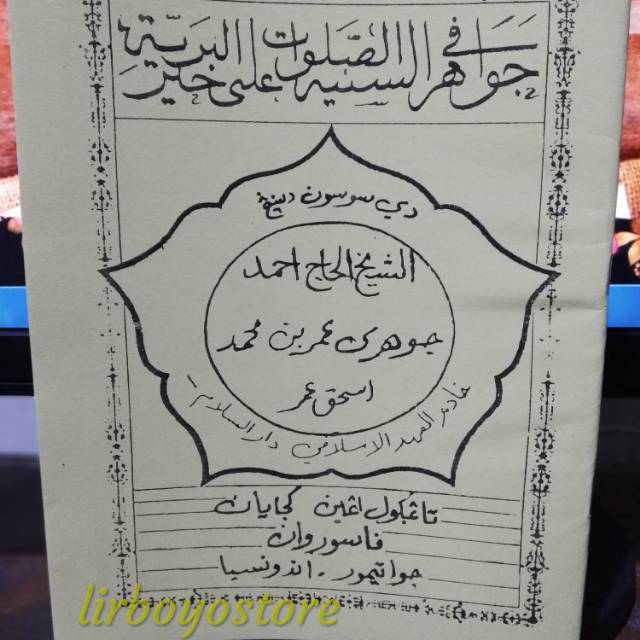 جواهر السنية في الصلوات
على خير البرية
دي سوسون اوليه
الشيخ الحاج احمد
جوهري عمر بن محمد
اسحق عمر
خادم المعهد الاسلامي دار السلام
تاڠكول اڠين كجايان
فاسوروان
جواتيمور - اندونسيا
lirboyostore